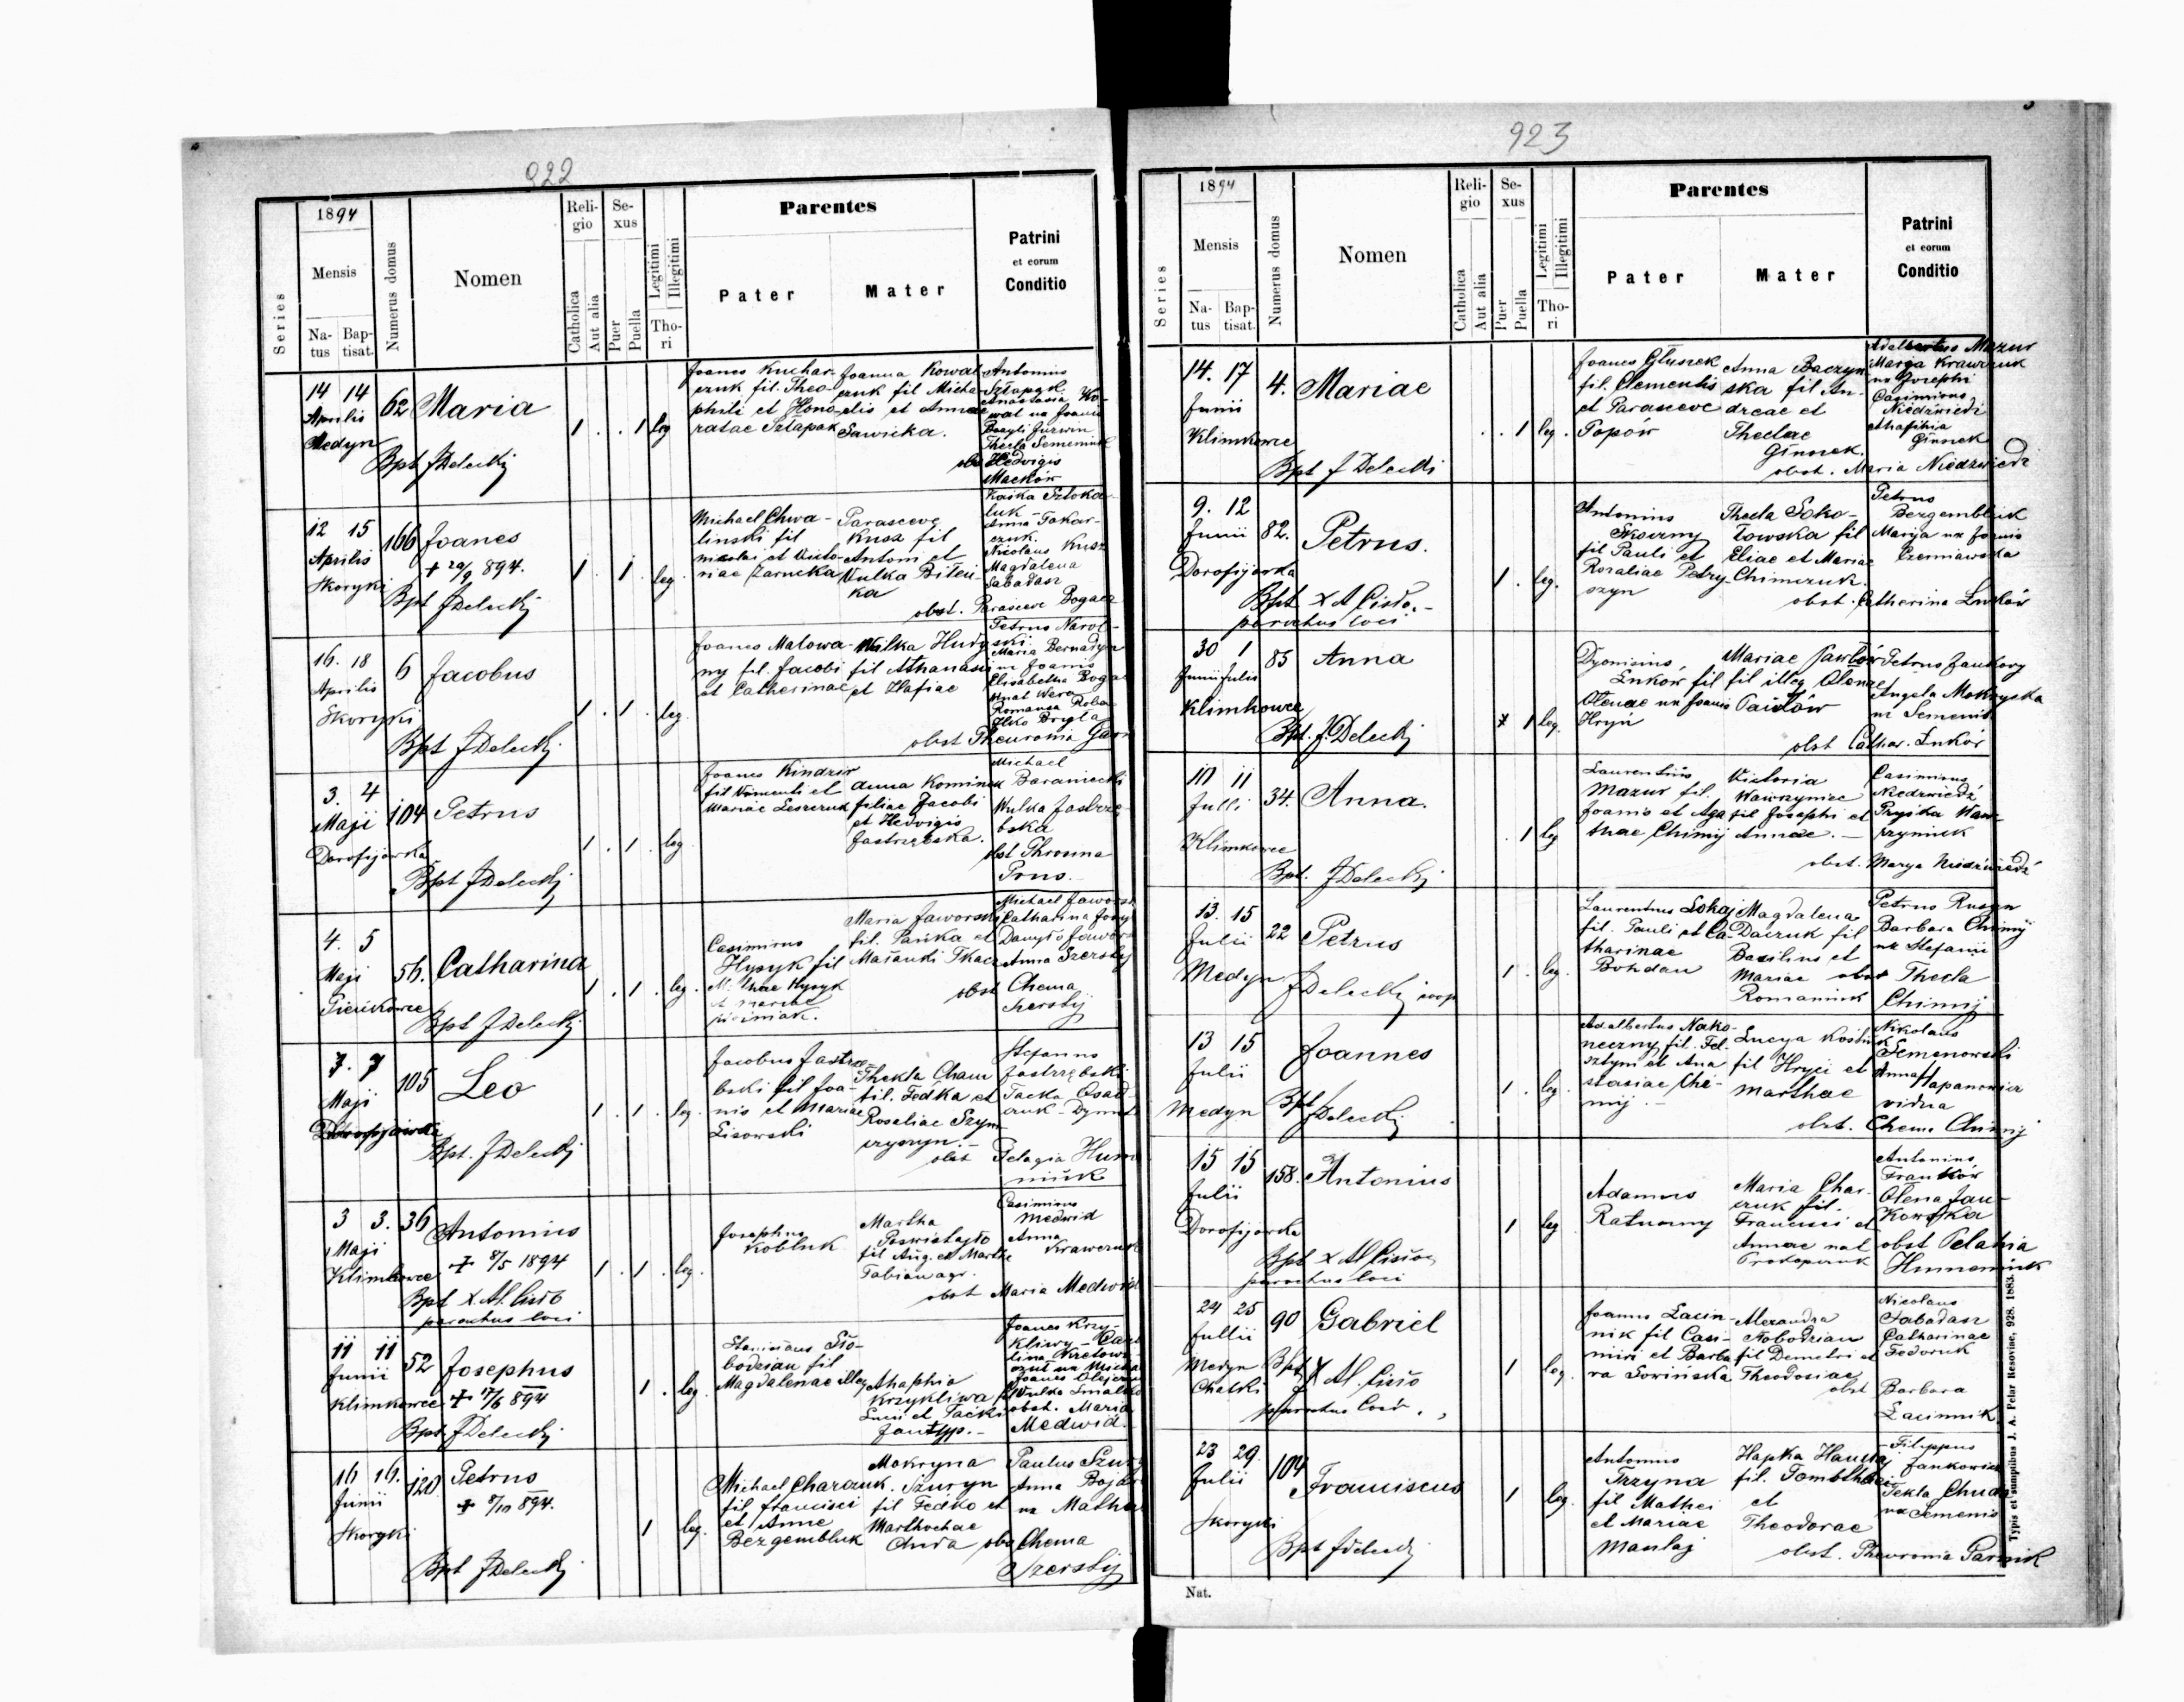 922
1894
Series
Mensis
Na-
tus
Bap-
tisat.
Numerus domus
Nomen
Reli-
gio
Catholica
Aut alia
Se-
xus
Puer
Puella
Legitimi
Illegitimi
Tho-
ri
Parentes
Pater
Mater
Patrini
et eorum
Conditio
14 14
Aprilis
Medyn
62
Maria
Bpt JDelecky
1 . . 1 leg
Joanes Kuchar-
czuk fil. Theo-
phili et Hono-
ratae Sztapak
Joanna Kowal
czuk fil Micha-
elis et Annae
Sawicka.
Antonius
Sztapak
Anastasia Ko-
wal ux Joanis
Thecla Semeniuk
obs Hedvigis
Maćków
12 15
Aprilis
Skoryki
166
Joanes
+ 29/9 894.
Bpt JDelecky
1 . 1 . leg.
Michael Chwa-
linski fil
Nicolai et Victo-
riae Zarucka
Parasceve
Kusz fil
Antoni et
Wulka Biteń-
ka
Kaśka Sztoka
luk -
Anna Tokar-
czuk.
Nicolaus Kusz
Magdalena
Sabadasz
obst. Parasceve Bogacz
16. 18
Aprilis
Skoryki
6
Jacobus
Bpt JDelecky
1 . 1 . leg.
Joanes Malowa-
ny fil. Jacobi
et Catherinae
fil Athanasii
et Hafiae
Petrus Narol-
ski
Maria Bernadyn
ux Joanis
Elisabetha Boga
obst Theuronia Garn
3. 4
Maji
Dorofijowka
104
Petrus
Bpt JDelecky
1 . 1 . leg
Joanes Kindzir
et
Mariae Leszczuk
Anna Kominek
filiae Jacobi
et Hedvigis
Jastrzębska.
Michael
Baraniecki
Wulka Jastrzę-
bska
obst Throsuna
Prus.
4. 5
Maji
Pieńkowce
56.
Catharina
Bpt JDelecky
1 . 1 . leg.
Casimirus
Hysyk fil
Maria Jaworski
fil. Pańka et
Maśanki Tkacz
Michael Jawors
Catharina
Danyło Jawor
Anna Szerstij
obst Chema
Szerstij
7. 7
Maji
Dorofijowka
105
Leo
Bpt. JDelecky
1 . 1 . leg.
Jacobus Jastrzę-
bski fil Joa-
nis et Mariae
Lisowski
Thekla Cham
fil. Fedka et
Rosaliae Szym-
czyszyn.
Stefanus
Jastrzębski
Tacka Osad-
czuk - Dymit
obst Pelagia Hum
niuk
3 3.
Maji
Klimkowce
36
Antonius
+ 8/5 1894
Bpt X Al. Cisło
parochus loci
1 . 1 . leg.
Josephus
Kobluk
Martha
Poswistajło
fil Aug. et Marthe
Fabian agr.
Casimirus
Medwid
Anna
Krawczuk
obst Maria Medwid
11 11
Junii
Klimkowce
52
Josephus
+ 17/6 894
Bpt JDelecky
1 . leg.
Stanislaus Sło-
bodzian fil
Magdalenae illeg
Ahaphia
Krzykliwa
Joanes Krzy-
kliwy -
obst. Maria
Medwid.
16 16.
Junii
Skoryki
120
Petrus
+ 8/10 894.
Bpt JDelecky
1 leg.
Michael Charczuk
fil Francisci
et Anne
Bezgembluk
Makryna
Szuryn
fil Fedko et
Marthochae
Chuda
Paulus Szur
Anna Bojar
ux Mathei
obs Chema
Szerstij
923
1894
Series
Mensis
Na-
tus
Bap-
tisat.
Numerus domus
Nomen
Reli-
gio
Catholica
Aut alia
Se-
xus
Puer
Puella
Legitimi
Illegitimi
Tho-
ri
Parentes
Pater
Mater
Patrini
et eorum
Conditio
14. 17
Junii
Klimkowce
4.
Mariae
Bpt J Delecki
. . 1 leg.
Joanes Głuszek
fil. Clementis
et Parasceve
Popów
Anna Baczyn-
ska fil An-
dreae et
Theclae
Ginszek.
Adalbertus Mazur
Marya Krawczuk
ux Josephi
Casimirus
Niedźwiedź
Ahafihia
Ginszek
obst. Maria Niedzwiedź
9. 12
Junii
Dorofijowka
82.
Petrus.
Bpt X Al Cisło. -
parochus loci
1 . leg.
Antonius
Skoczny
fil Pauli et
Rosaliae Petry-
szyn
Thecla Soko-
łowska fil
Eliae et Mariae
Chimczuk.
Petrus
Bezgembluk
Marija ux Joanis
Czerniawska
obst. Catherina Łuków
30 1
Junii Julii
Klimkowce
85
Anna
Bpt. J. Delecky
1 leg.
Dyonisius
Łuków fil
Olenae ux Joanis
Hryń
Mariae Pawłów
fil illeg Olenae
Petrus Jankowy
Angela Mokryska
ux Semenis
obst Cathar. Łuków
10 11
Julii
Klimkowce
34.
Anna.
Bpt. JDelecky
. 1 leg
Laurentius
Mazur fil.
Joanis et Aga
thae Chimij
Victoria
Wawrzyniec
fil Josephi et
Annae. -
Casimirus
Niedzwiedź
Pryśka Waw-
rzyniuk
obst. Marya Niedzwiedź
13. 15
Julii
Medyn
22
Petrus
JDelecky coop
1 . leg.
Laurentius Łokaj
fil. Pauli et Ca-
tharinae
Bohdan
Magdalena
Daczuk fil
Basilius et
Mariae
Romaniuk
Petrus Rusyn
Barbara Chimij
ux Stefanii
obst Thecla
Chimij
13 15
Julii
Medyn
Joannes
Bpt JDelecky
1 . leg.
Adalbertus Nako-
neczny fil. Fel-
sztyni et Ana
stasiae Chi-
mij. -
Lucya Kostiuk
fil Hryci et
Marthae
Nikolaus
Semenowski
Anna Hapanowicz
vidua
obst. Chema Chimij
15 15
Julii
Dorofijowka
158.
Antonius
Bpt X Al Cisło
parochus loci
1 leg
Adamus
Ratuszny
Maria Char-
czuk fil.
Francisci et
Annae nat
Prokopczuk
Antonius
Franków
Olena Jan-
kowska
obst Pelahia
Humeniuk
24 25
Jullii
Medyn
Chatki
90
Gabriel
Bpt X Al. Cisło
parochus loci.
1 leg.
Joanes Łacin-
nik fil Casi-
miri et Barba
ra Sowińska
Alexandra
Słobodzian
fil Demetri et
Theodosiae
Nicolaus
Sabadasz
Catharinae
Fedoruk
obst Barbara
Łacinnik
23 29
Julii
Skoryki
104
Franciscus
Bpt JDelecky
1 leg.
Antonius
Trzyna
fil Mathei
et Mariae
Maulaj
Hapka Hawraj
fil.
et
Theodorae
Filippus
Jankowicz
Tekla Chuda
ux Semenis
obst. Theuronia Garnik
Nat.
Typis et sumptibus J. A. Pelar Resoviae, 928. 1883.